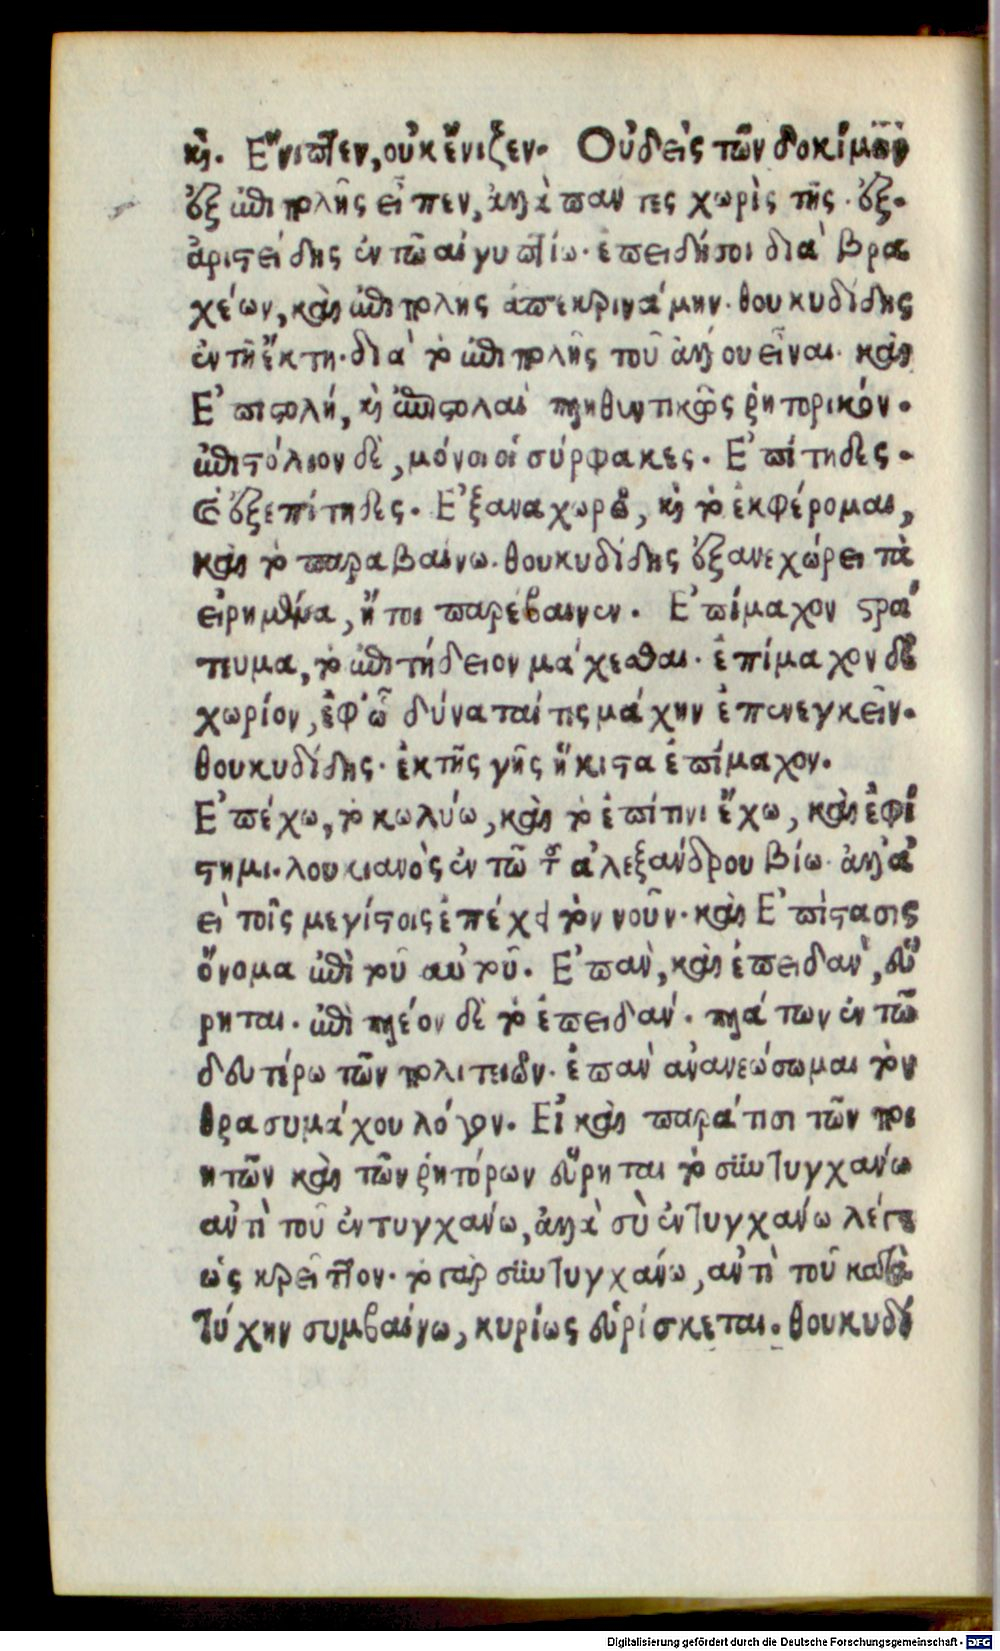 κή. Ἔνιπτεν, οὐκ ἔνιζεν. Οὐδεὶς τῶν δοκίμων
ἐξ ἐπιπολῆς εἶπεν, ἀλλὰ παντες χωρὶς τῆς ἐξ.
ἀριστείδης ἐν τῷ αἰγυπτίω. ἐπειδήσοι διὰ βρα
χέων, καὶ ἐπιπολης ἀπεκρινάμην. θουκυδίδης
ἐν τῇ ἕκτη. διὰ τὸ ἐπιπολῆς τοῦ ἄλλου εἶναι. καὶ
Ἐπιστολή, καὶ ἐπιστολαὶ πληθυντικῶς ῥητορικόν.
ἐπιστόλιον δὲ, μόνοι οἱ σύρφακες. Ἐπίτηδες.
καὶ ἐξεπίτηδες. Ἐξαναχωρῶ, καὶ τὸ ἐκφέρομαι,
καὶ τὸ παραβαίνω. θουκυδίδης ἐξανεχώρει τὰ
εἰρημένα, ἤτοι παρέβαινεν. Ἐπίμαχον στρά
τευμα, τὸ ἐπιτήδειον μάχεσθαι. ἐπίμαχον δὲ
χωρίον, ἐφ' ᾧ δύναταί τις μάχην ἐπενεγκεῖν.
θουκυδίδης. ἐκ τῆς γῆς ἥκιστα ἐπίμαχον.
Ἐπέχω, τὸ κωλύω, καὶ τὸ ἐπί τινι ἔχω, καὶ ἐφί
στημι. λουκιανὸς ἐν τῷ τοῦ ἀλεξάνδρου βίω. ἀλλὰ
εἰ τοῖς μεγίστοις ἐπέχει τὸν νοῦν. καὶ Ἐπίστασις
ὄνομα ἐπὶ τοῦ αὐτοῦ. Ἐπὰν, καὶ ἐπειδὰν, εὕ
ρηται. ἐπὶ πλέον δὲ τὸ ἐπειδάν. πλάτων ἐν τῷ
δευτέρω τῶν πολιτειῶν. ἐπὰν ἀνανεώσωμαι τὸν
θρασυμάχου λόγον. Εἰ καὶ παρά τισι τῶν ποι
ητῶν καὶ τῶν ῥητόρων εὕρηται τὸ συντυγχάνω
ἀντὶ τοῦ ἐντυγχάνω, ἀλλὰ σὺ ἐντυγχάνω λέγε
ὡς κρεῖττον. τὸ γὰρ συντυγχάνω, ἀντὶ τοῦ κατὰ
τύχην συμβαίνω, κυρίως εὑρίσκεται. θουκυδί
Digitalisierung gefördert durch die Deutsche Forschungsgemeinschaft - DFG